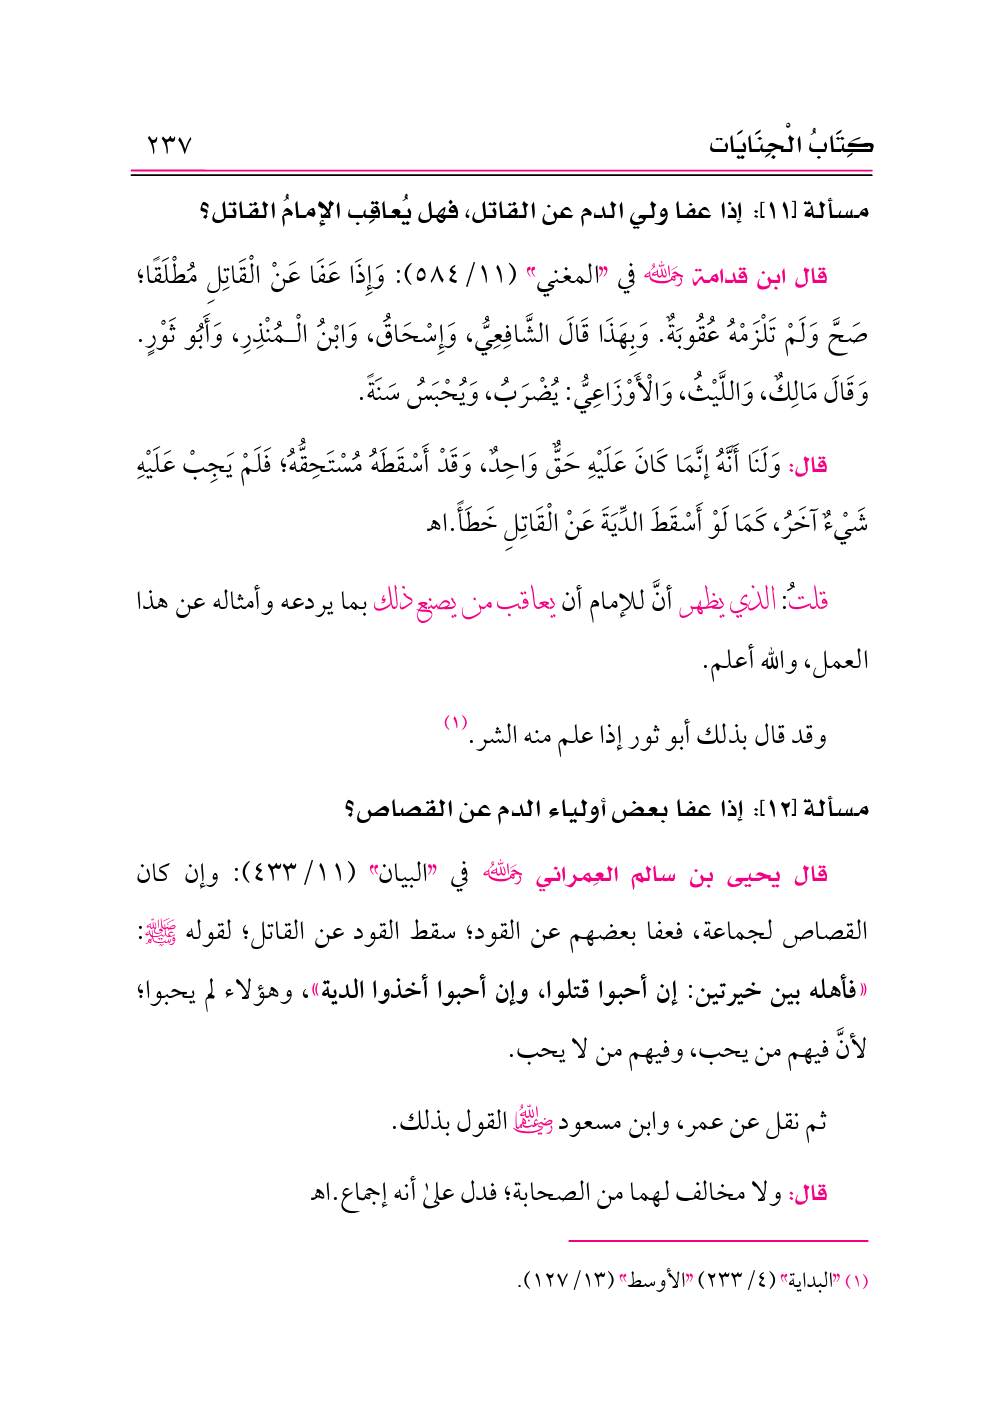 كِتَابُ الْجِنَايَات ٢٣٧
مسألة [١١]: إذا عفا ولي الدم عن القاتل، فهل يُعاقِب الإمامُ القاتل؟
قال ابن قدامة رحمه الله في "المغني" (١١/ ٥٨٤): وَإِذَا عَفَا عَنْ الْقَاتِلِ مُطْلَقًا؛
صَحَّ وَلَمْ تَلْزَمْهُ عُقُوبَةٌ. وَبِهَذَا قَالَ الشَّافِعِيُّ، وَإِسْحَاقُ، وَابْنُ الْـمُنْذِرِ، وَأَبُو ثَوْرٍ.
وَقَالَ مَالِكٌ، وَاللَّيْثُ، وَالْأَوْزَاعِيُّ: يُضْرَبُ، وَيُحْبَسُ سَنَةً.
قال: وَلَنَا أَنَّهُ إنَّمَا كَانَ عَلَيْهِ حَقٌّ وَاحِدٌ، وَقَدْ أَسْقَطَهُ مُسْتَحِقُّهُ؛ فَلَمْ يَجِبْ عَلَيْهِ
شَيْءٌ آخَرُ، كَمَا لَوْ أَسْقَطَ الدِّيَةَ عَنْ الْقَاتِلِ خَطَأً.اهـ
قلتُ: الذي يظهر أنَّ للإمام أن يعاقب من يصنع ذلك بما يردعه وأمثاله عن هذا
العمل، والله أعلم.
وقد قال بذلك أبو ثور إذا علم منه الشر.(١)
مسألة [١٢]: إذا عفا بعض أولياء الدم عن القصاص؟
قال يحيى بن سالم العِمراني رحمه الله في "البيان" (١١/ ٤٣٣): وإن كان
القصاص لجماعة، فعفا بعضهم عن القود؛ سقط القود عن القاتل؛ لقوله ﷺ:
«فأهله بين خيرتين: إن أحبوا قتلوا، وإن أحبوا أخذوا الدية»، وهؤلاء لم يحبوا؛
لأنَّ فيهم من يحب، وفيهم من لا يحب.
ثم نقل عن عمر، وابن مسعود رضي الله عنهما القول بذلك.
قال: ولا مخالف لهما من الصحابة؛ فدل علىٰ أنه إجماع.اهـ
(١) "البداية" (٤/ ٢٣٣) "الأوسط" (١٣/ ١٢٧).